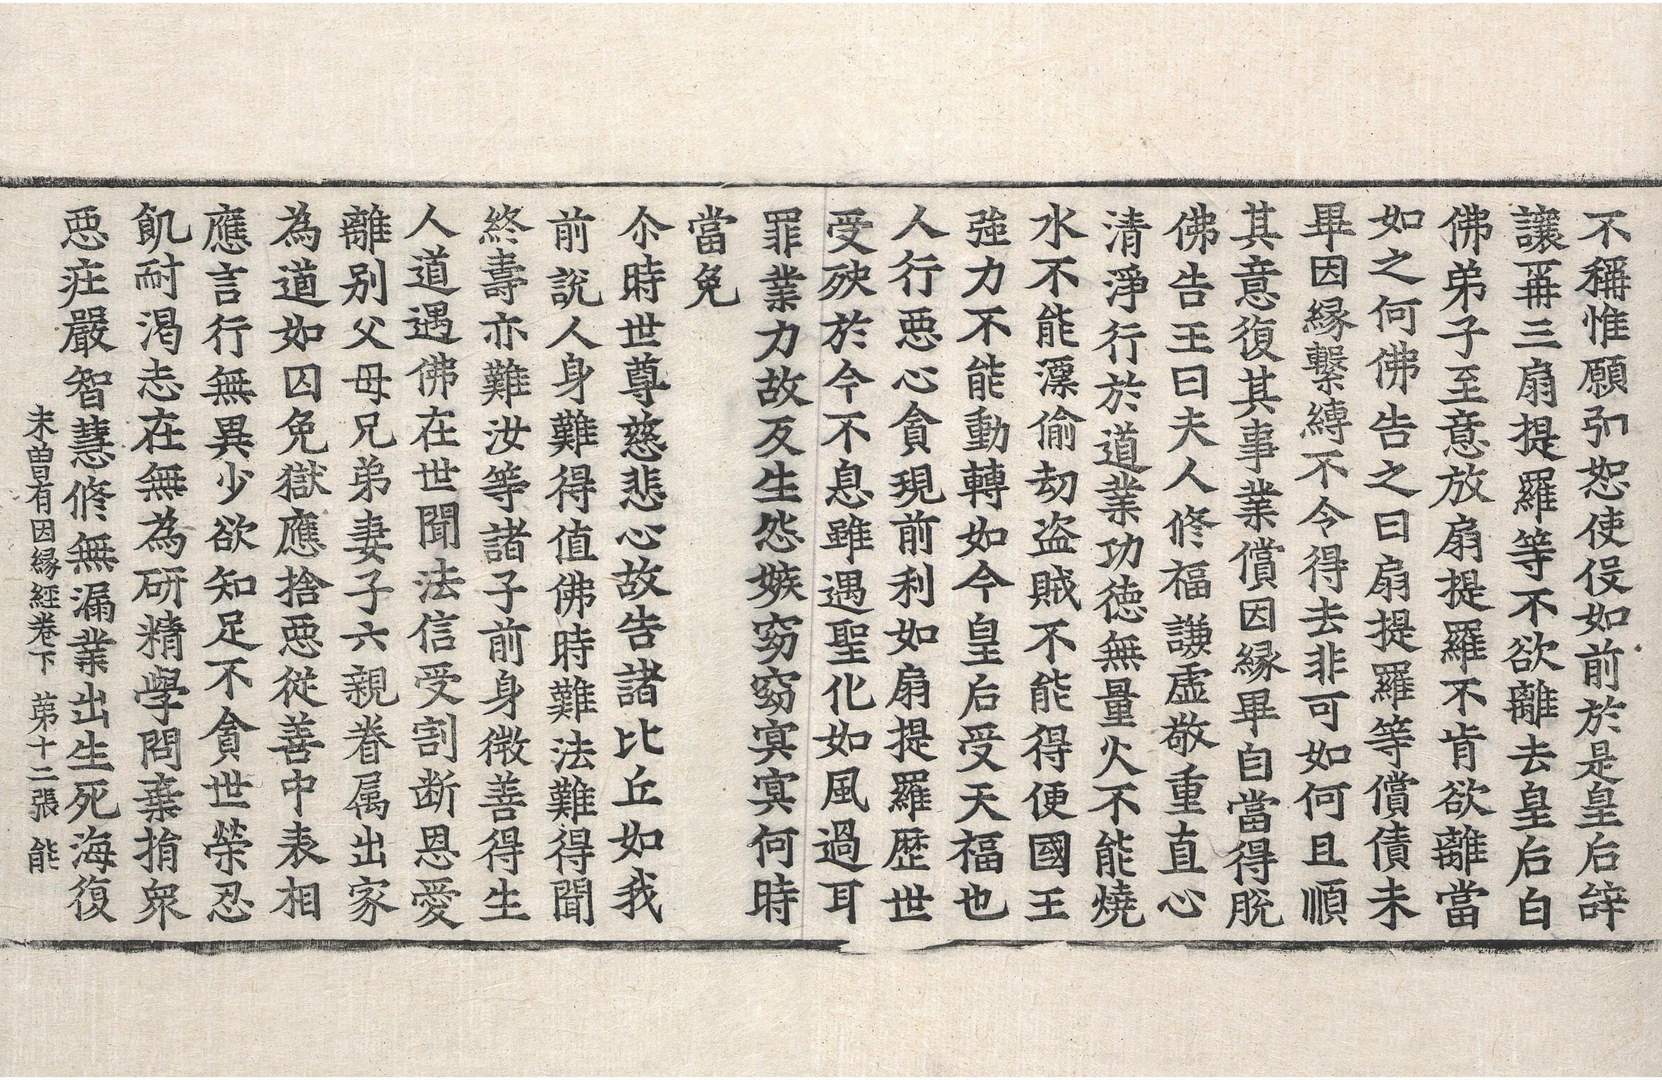 不稱惟願弘恕使役如前於是皇后辝
讓再三扇提羅等不欲離去皇后白
佛弟子至意放扇提羅不肯欲離當
如之何佛告之曰扇提羅等償債未
畢因縁繫縛不令得去非可如何且順
其意復其事業償因縁畢自當得脫
佛告王曰夫人修福謙虛敬重直心
清淨行於道業功德無量火不能燒
水不能漂偷劫盗賊不能得便國王
強力不能動轉如今皇后受天福也
人行惡心貪現前利如扇提羅歷世
受殃於今不息雖遇聖化如風過耳
罪業力故反生怨嫉窈窈冥冥何時
當免
尒時世尊慈悲心故告諸比丘如我
前說人身難得值佛時難法難得聞
終壽亦難汝等諸子前身微善得生
人道遇佛在世聞法信受割断恩愛
離別父母兄弟妻子六親眷属出家
為道如囚免獄應捨惡從善中表相
應言行無異少欲知足不貪世榮忍
飢耐渴志在無為研精學問棄捐衆
惡莊嚴智慧修無漏業出生死海復
未曽有因縁經卷下 苐十二張 能